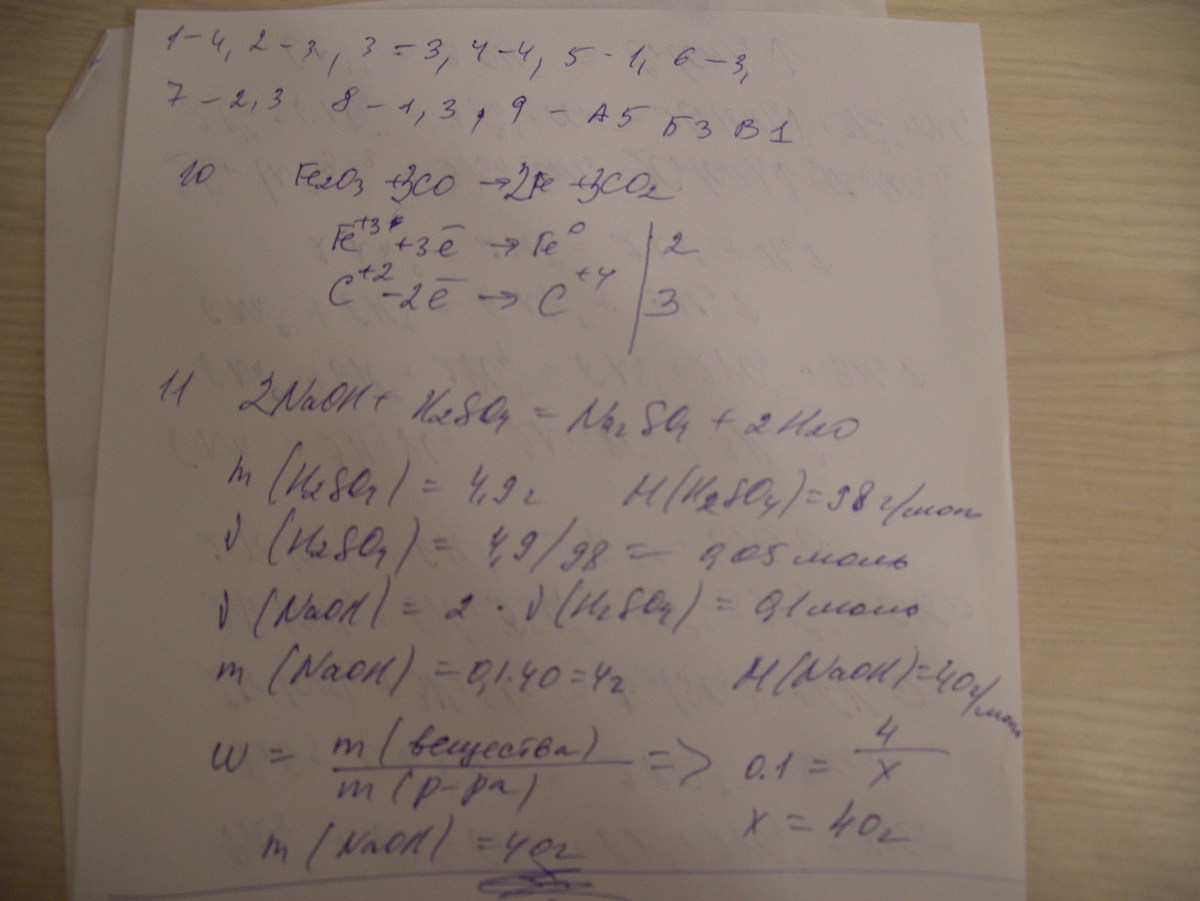 1-4, 2-3, 3=3, 4-4, 5-1, 6-3,
7-2,3 8-1,3, 9-А5 Б3 В1
10 Fe2O3 +3CO → 2Fe +3CO2
Fe+3 +3e̅ → Fe0 | 2
C+2 -2e̅ → C+4 | 3
11 2NaOH + H2SO4 = Na2SO4 + 2H2O
m (H2SO4) = 4,9г M(H2SO4)=98г/моль
ν (H2SO4) = 4,9/98 = 0,05 моль
ν (NaOH) = 2 · ν(H2SO4) = 0,1 моль
m (NaOH) = 0,1·40=4г M(NaOH)=40г/моль
w = m(вещества) / m(р-ра) => 0.1 = 4/x
x = 40г
m (NaOH) = 40г